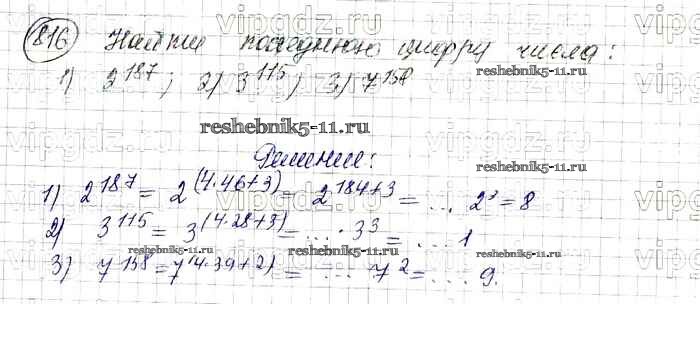 vipgdz.ru vipgdz.ru vipgdz.ru
816 Найти последнюю цифру числа:
1) 2^187; 2) 3^115; 3) 7^158
reshebnik5-11.ru
vipgdz.ru vipgdz.ru vipgdz.ru
reshebnik5-11.ru
Решение:
1) 2^187 = 2^(4·46+3) = 2^184+3 = ... 2^3 = 8
2) 3^115 = 3^(4·28+3) = ... · 3^3 = ... 1
reshebnik5-11.ru
3) 7^158 = 7^(4·39+2) = ... 7^2 = ... 9.
reshebnik5-11.ru
vipgdz.ru vipgdz.ru vipgdz.ru